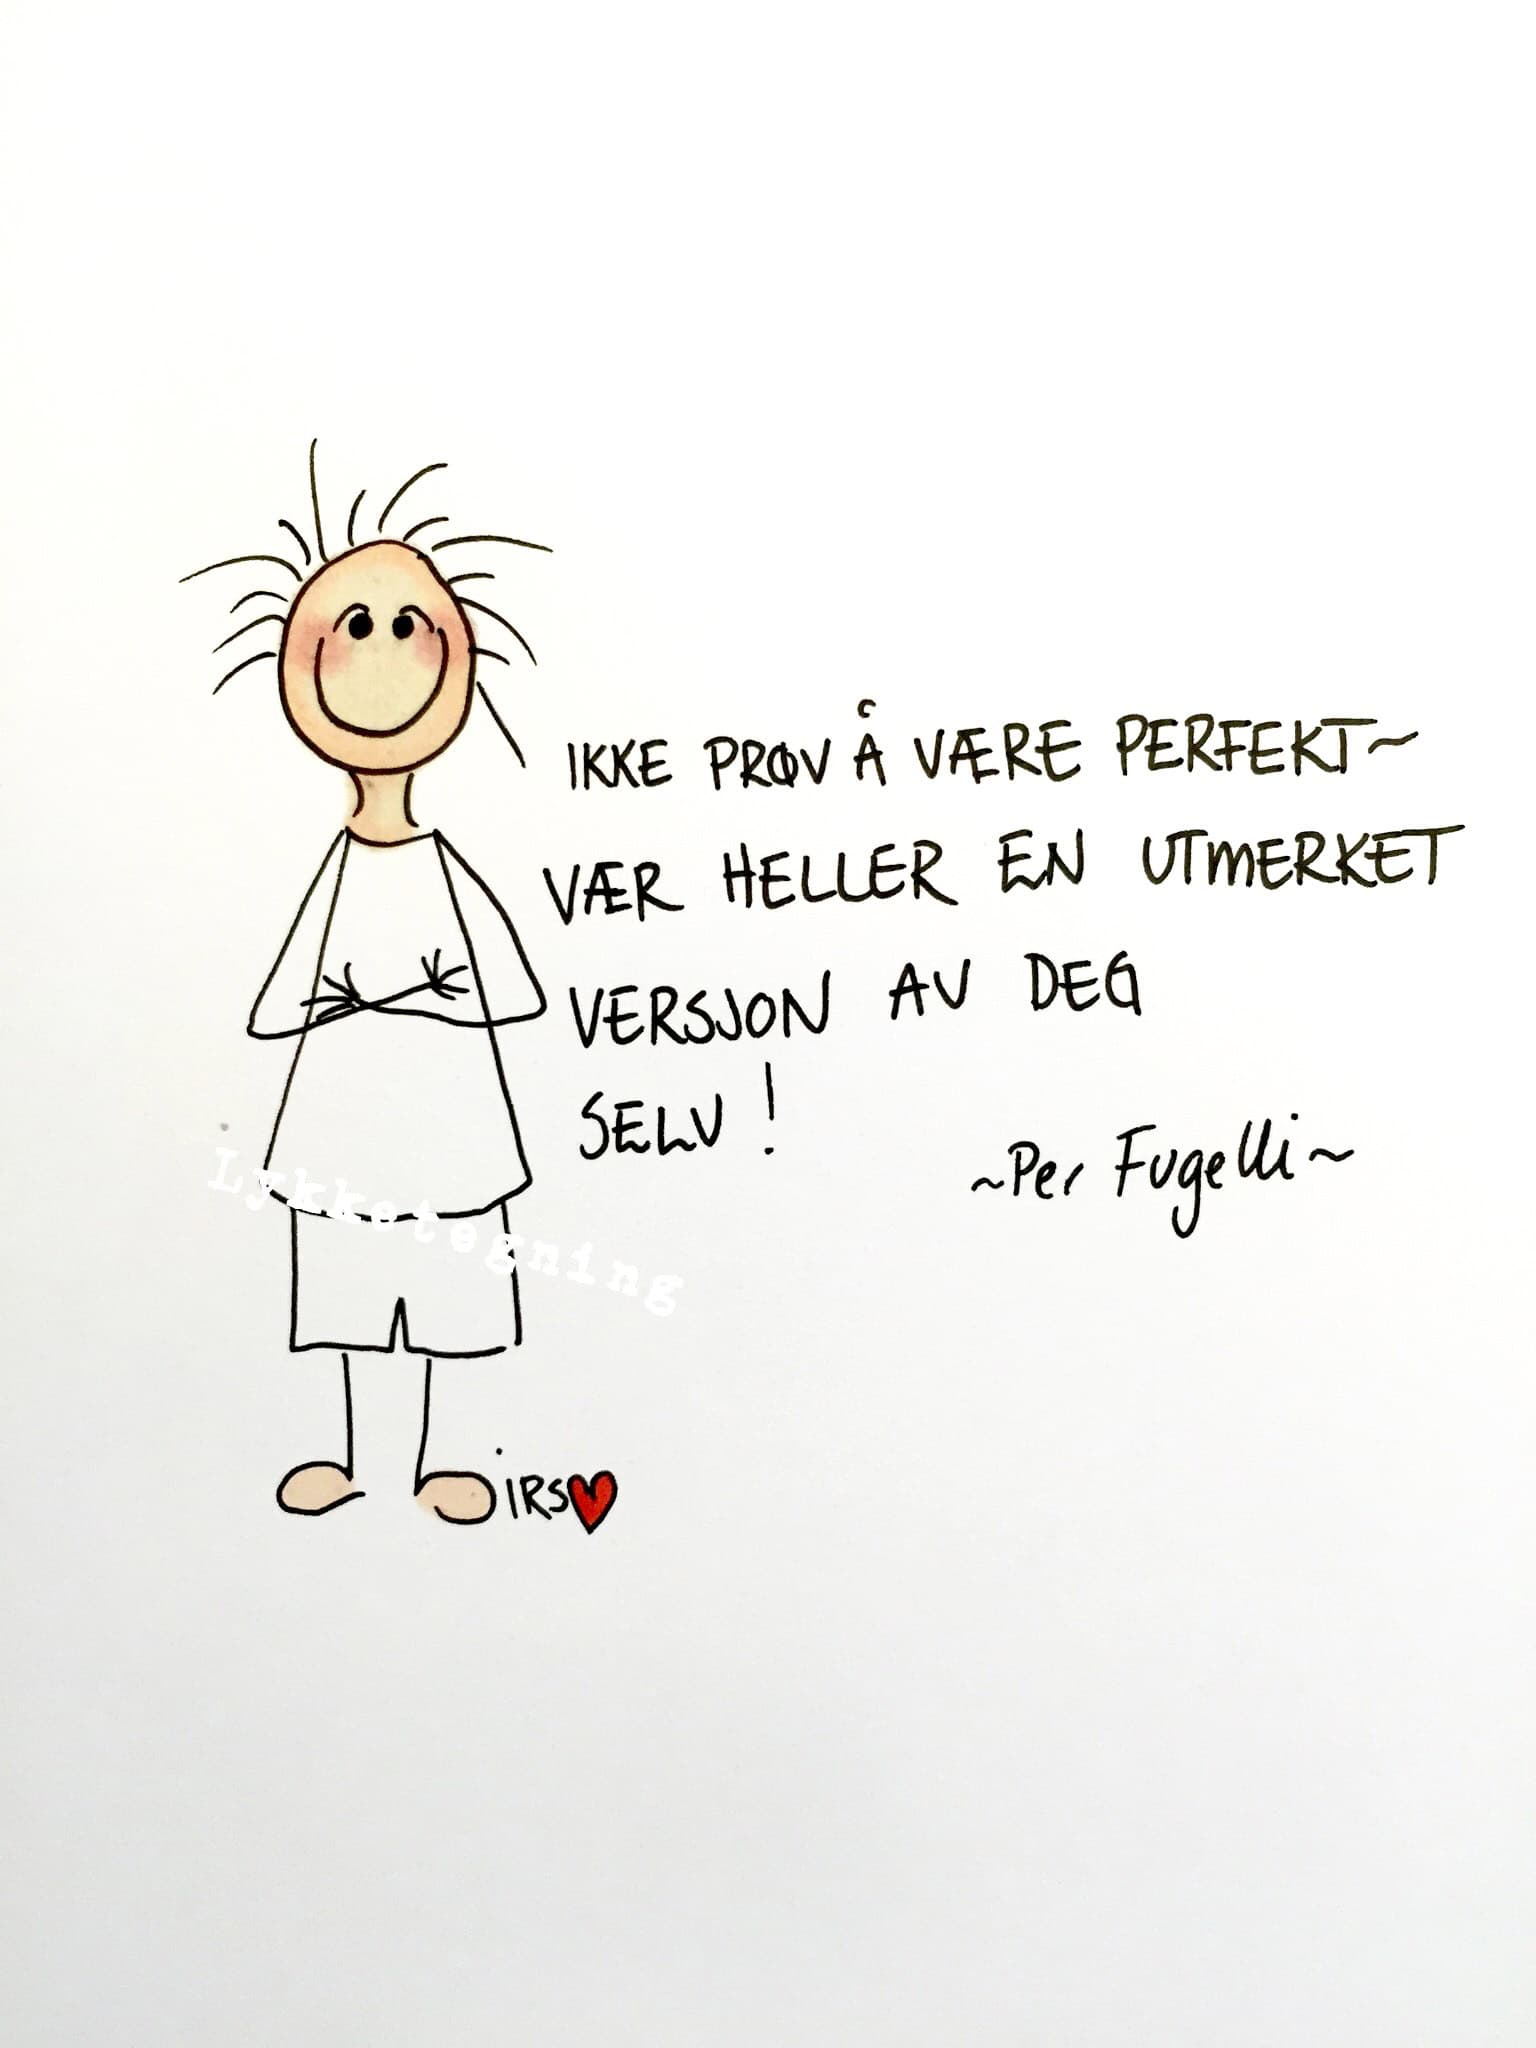 IKKE PRØV Å VÆRE PERFEKT~
VÆR HELLER EN UTMERKET
VERSJON AV DEG
SELV!
~Per Fugelli~
Lykketegning
iRS